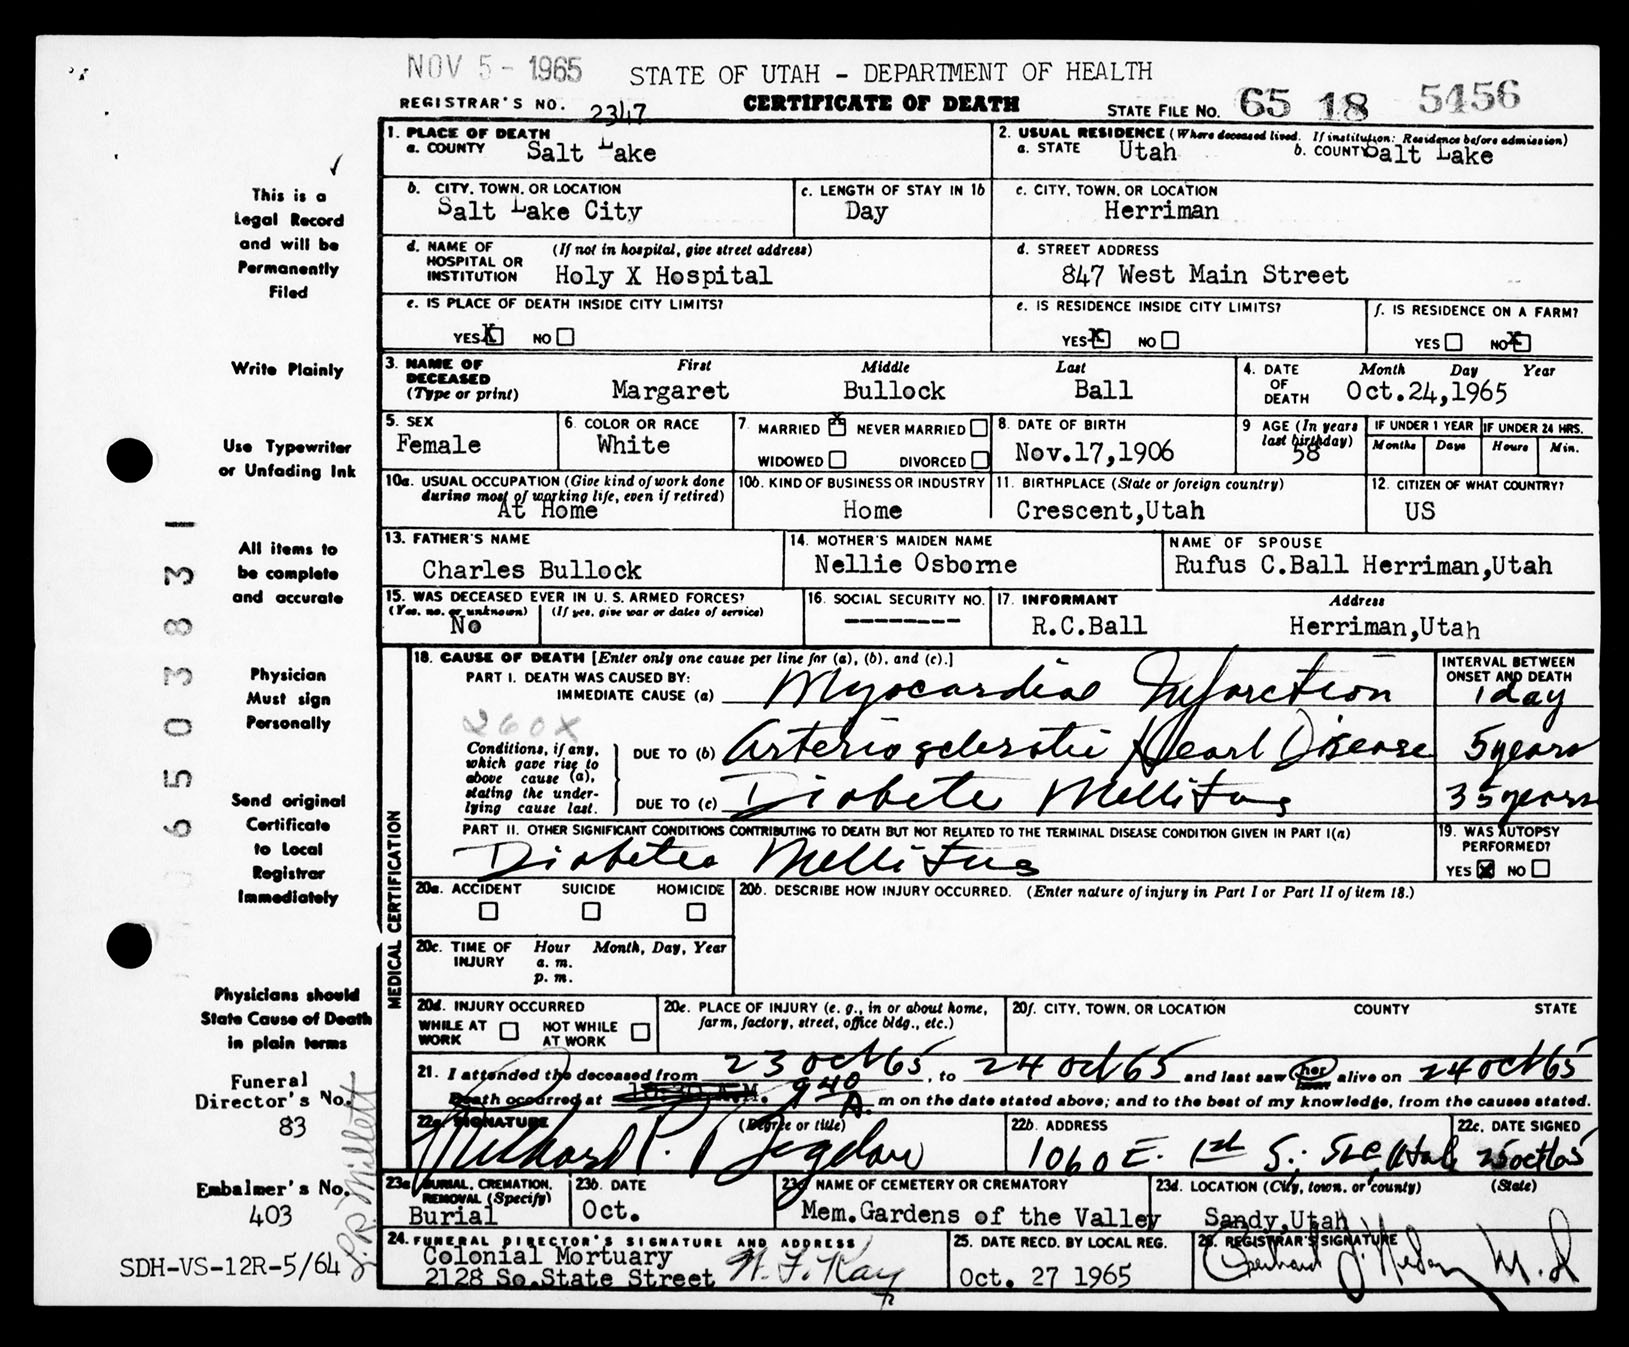 NOV 5 - 1965
STATE OF UTAH - DEPARTMENT OF HEALTH
REGISTRAR'S NO. 2347
CERTIFICATE OF DEATH
STATE FILE NO. 65 18 5456
1. PLACE OF DEATH
a. COUNTY Salt Lake
2. USUAL RESIDENCE (Where deceased lived. If institution: Residence before admission)
a. STATE Utah b. COUNTY Salt Lake
b. CITY, TOWN, OR LOCATION
Salt Lake City
c. LENGTH OF STAY IN 1b
Day
c. CITY, TOWN, OR LOCATION
Herriman
d. NAME OF HOSPITAL OR INSTITUTION (If not in hospital, give street address)
Holy X Hospital
d. STREET ADDRESS
847 West Main Street
e. IS PLACE OF DEATH INSIDE CITY LIMITS?
YES X NO
e. IS RESIDENCE INSIDE CITY LIMITS?
YES X NO
f. IS RESIDENCE ON A FARM?
YES NO X
3. NAME OF DECEASED (Type or print)
First Middle Last
Margaret Bullock Ball
4. DATE OF DEATH
Month Day Year
Oct.24,1965
5. SEX
Female
6. COLOR OR RACE
White
7. MARRIED X NEVER MARRIED
WIDOWED DIVORCED
8. DATE OF BIRTH
Nov.17,1906
9 AGE (In years last birthday)
58
IF UNDER 1 YEAR
Months Days
IF UNDER 24 HRS.
Hours Min.
10a. USUAL OCCUPATION (Give kind of work done during most of working life, even if retired)
At Home
10b. KIND OF BUSINESS OR INDUSTRY
Home
11. BIRTHPLACE (State or foreign country)
Crescent,Utah
12. CITIZEN OF WHAT COUNTRY?
US
13. FATHER'S NAME
Charles Bullock
14. MOTHER'S MAIDEN NAME
Nellie Osborne
NAME OF SPOUSE
Rufus C.Ball Herriman,Utah
15. WAS DECEASED EVER IN U.S. ARMED FORCES?
(Yes, no, or unknown) (If yes, give war or dates of service)
No
16. SOCIAL SECURITY NO.
--------
17. INFORMANT Address
R.C.Ball Herriman,Utah
MEDICAL CERTIFICATION
18. CAUSE OF DEATH [Enter only one cause per line for (a), (b), and (c).]
PART I. DEATH WAS CAUSED BY:
IMMEDIATE CAUSE (a) Myocardial Infarction
INTERVAL BETWEEN ONSET AND DEATH
1 day
260X
Conditions, if any, which gave rise to above cause (a), stating the underlying cause last.
DUE TO (b) Arteriosclerotic Heart Disease 5 years
DUE TO (c) Diabetes Mellitus 35 years
PART II. OTHER SIGNIFICANT CONDITIONS CONTRIBUTING TO DEATH BUT NOT RELATED TO THE TERMINAL DISEASE CONDITION GIVEN IN PART I(a)
Diabetes Mellitus
19. WAS AUTOPSY PERFORMED?
YES X NO
20a. ACCIDENT SUICIDE HOMICIDE
20b. DESCRIBE HOW INJURY OCCURRED. (Enter nature of injury in Part I or Part II of item 18.)
20c. TIME OF INJURY Hour Month, Day, Year
a. m.
p. m.
20d. INJURY OCCURRED
WHILE AT WORK NOT WHILE AT WORK
20e. PLACE OF INJURY (e. g., in or about home, farm, factory, street, office bldg., etc.)
20f. CITY, TOWN, OR LOCATION COUNTY STATE
21. I attended the deceased from 23 Oct 65, to 24 Oct 65 and last saw her alive on 24 Oct 65
Death occurred at 10:30 A.M. 9 40 A. m on the date stated above; and to the best of my knowledge, from the causes stated.
22a SIGNATURE (Degree or title)
Richard P. Bigelow
22b. ADDRESS
1060 E. 1st S. SLC, Utah
22c. DATE SIGNED
25 Oct 65
23a BURIAL, CREMATION, REMOVAL (Specify)
Burial
23b. DATE
Oct.
23c NAME OF CEMETERY OR CREMATORY
Mem.Gardens of the Valley
23d. LOCATION (City, town, or county) (State)
Sandy,Utah
24. FUNERAL DIRECTOR'S SIGNATURE AND ADDRESS
Colonial Mortuary
2128 So.State Street
25. DATE RECD. BY LOCAL REG.
Oct. 27 1965
26. REGISTRAR'S SIGNATURE
M.D
This is a
Legal Record
and will be
Permanently
Filed
Write Plainly
Use Typewriter
or Unfading Ink
All items to
be complete
and accurate
Physician
Must sign
Personally
Send original
Certificate
to Local
Registrar
Immediately
Physicians should
State Cause of Death
in plain terms
Funeral
Director's No.
83
Embalmer's No.
403
SDH-VS-12R-5/64